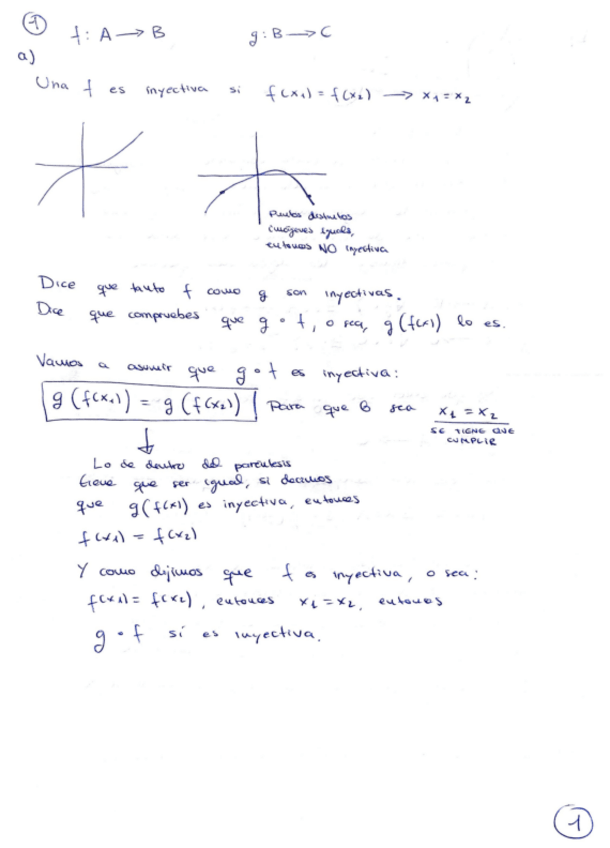 1
f: A → B g: B → C
a)
Una f es inyectiva si f(x₁) = f(x₂) → x₁ = x₂
Puntos distintos
imágenes iguals,
entonces NO inyectiva
Dice que tanto f como g son inyectivas.
Dice que compruebes que g ∘ f, o sea, g(f(x)) lo es.
Vamos a asumir que g ∘ f es inyectiva:
g(f(x₁)) = g(f(x₂)) Para que lo sea x₁ = x₂
SE TIENE QUE
CUMPLIR
Lo de dentro del paréntesis
tiene que ser igual, si decimos
que g(f(x)) es inyectiva, entonces
f(x₁) = f(x₂)
Y como dijimos que f es inyectiva, o sea:
f(x₁) = f(x₂), entonces x₁ = x₂, entonces
g ∘ f sí es inyectiva.
1